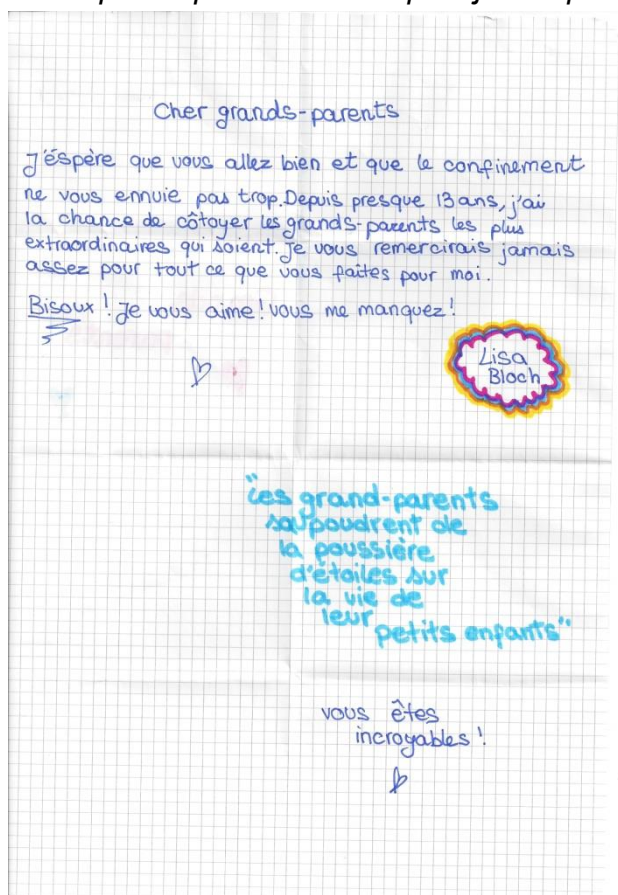 Cher grands-parents
J'éspère que vous allez bien et que le confinement
ne vous ennuie pas trop. Depuis presque 13 ans, j'ai
la chance de côtoyer les grands-parents les plus
extraordinaires qui soient. Je vous remercirais jamais
assez pour tout ce que vous faites pour moi.
Bisoux ! Je vous aime ! vous me manquez !
Lisa
Bloch
"Les grand-parents
saupoudrent de
la poussière
d'étoiles sur
la vie de
leur
petits enfants"
vous êtes
incroyables !